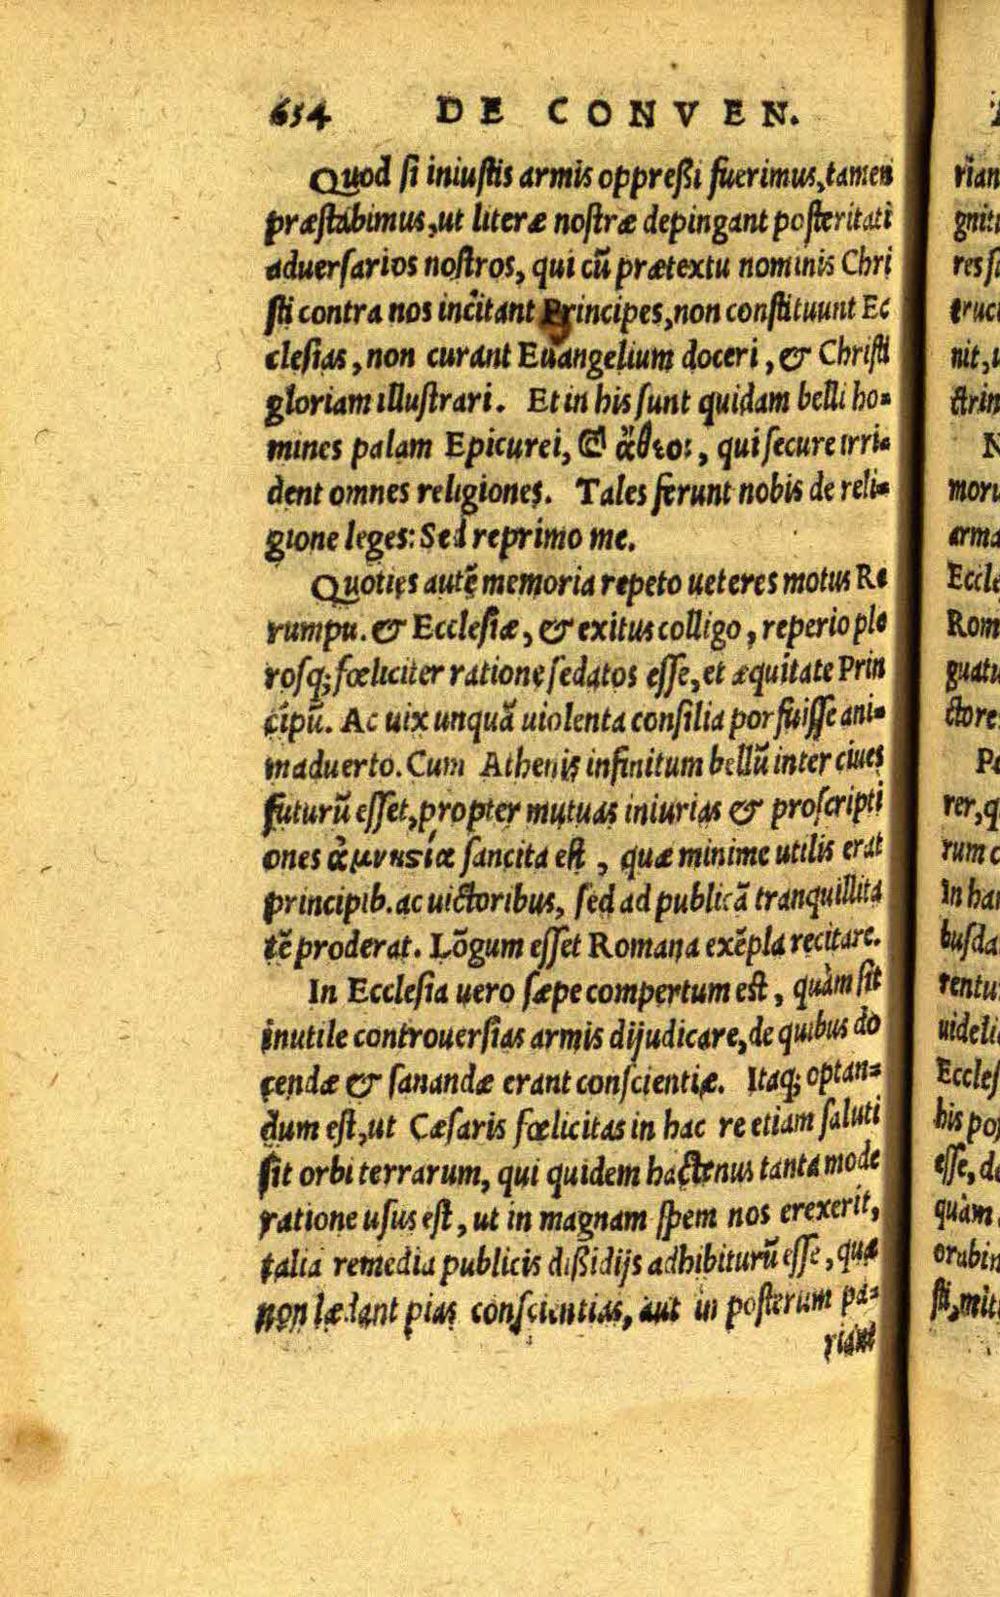 654 DE CONVEN.
Quod ſi iniuſtis armis oppreßi fuerimus, tamen
præſtabimus, ut literæ noſtræ depingant poſteritati
aduerſarios noſtros, qui cū prætextu nominis Chri
ſti contra nos incitant Principes, non conſtituunt Ec
cleſias, non curant Euangelium doceri, & Chriſti
gloriam illuſtrari. Et in his ſunt quidam belli ho-
mines palam Epicurei, & ἄθεοι, qui ſecure irri-
dent omnes religiones. Tales ferunt nobis de reli-
gione leges: Sed reprimo me.
Quoties autē memoria repeto ueteres motus Re
rumpu. & Eccleſiæ, & exitus colligo, reperio ple
roſq; fœliciter ratione ſedatos eſſe, et æquitate Prin
cipū. Ac uix unquā uiolenta conſilia porfuiſſe ani-
maduerto. Cum Athenis infinitum bellū inter ciues
futurū eſſet, propter mutuas iniurias & proſcripti
ones ἀμνηστία ſancita eſt, quæ minime utilis erat
principib. ac uictoribus, ſed ad publicā tranquillita
tē proderat. Lōgum eſſet Romana exēpla recitare.
In Eccleſia uero ſæpe compertum eſt, quàm ſit
inutile controuerſias armis dijudicare, de quibus do
cendæ & ſanandæ erant conſcientiæ. Itaq; optan-
dum eſt, ut Cæſaris fœlicitas in hac re etiam ſaluti
ſit orbi terrarum, qui quidem hactenus tanta mode
ratione uſus eſt, ut in magnam ſpem nos erexerit,
talia remedia publicis dißidijs adhibiturū eſſe, quæ
non lædant pias conſcientias, aut in poſterum pa-
riant
rian
gniti
res ſi
truci
nit, u
ctrin
N
moru
arma
Eccle
Rom
guatu
ctore
Po
rer, q
rum c
In ha
buſda
rentu
uideli
Eccleſ
his po
eſſe, de
quàm
orabin
ſti, mit